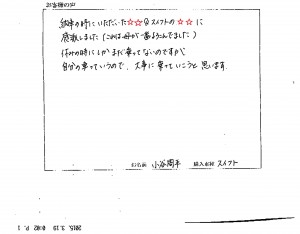 お客様の声
納車の時にいただいた☆☆&スイフトの☆☆に
感動しました(これは母が一番よろこんでました)
休みの時にしかまだ乗ってないのですが、
自分の乗っていくもので、大事に乗っていこうと思います。
お名前 小谷周平 購入車種 スイフト
2015. 3.19 8:02 P. 1